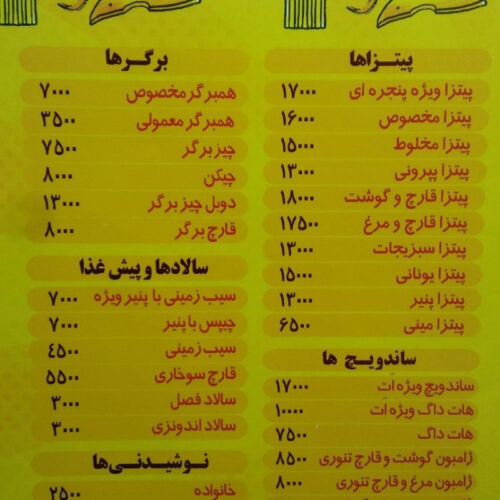 پیتزاها
پیتزا ویژه پنجره ای ۱۷۰۰۰
پیتزا مخصوص ۱۶۰۰۰
پیتزا مخلوط ۱۵۰۰۰
پیتزا پپرونی ۱۳۰۰۰
پیتزا قارچ و گوشت ۱۸۰۰۰
پیتزا قارچ و مرغ ۱۷۵۰۰
پیتزا سبزیجات ۱۳۰۰۰
پیتزا یونانی ۱۵۰۰۰
پیتزا پنیر ۱۳۰۰۰
پیتزا مینی ۶۵۰۰
ساندویچ ها
ساندویچ ویژه اَت ۱۷۰۰۰
هات داگ ویژه اَت ۱۰۰۰۰
هات داگ ۷۵۰۰
ژامبون گوشت و قارچ تنوری ۸۵۰۰
ژامبون مرغ و قارچ تنوری ۸۰۰۰
برگرها
همبرگر مخصوص ۷۰۰۰
همبرگر معمولی ۳۵۰۰
چیز برگر ۷۵۰۰
چیکن ۸۰۰۰
دوبل چیز برگر ۱۳۰۰۰
قارچ برگر ۸۰۰۰
سالادها و پیش غذا
سیب زمینی با پنیر ویژه ۷۰۰۰
چیپس با پنیر ۷۰۰۰
سیب زمینی ۴۵۰۰
قارچ سوخاری ۵۵۰۰
سالاد فصل ۳۰۰۰
سالاد اندونزی ۳۰۰۰
نوشیدنی‌ها
خانواده ۲۵۰۰